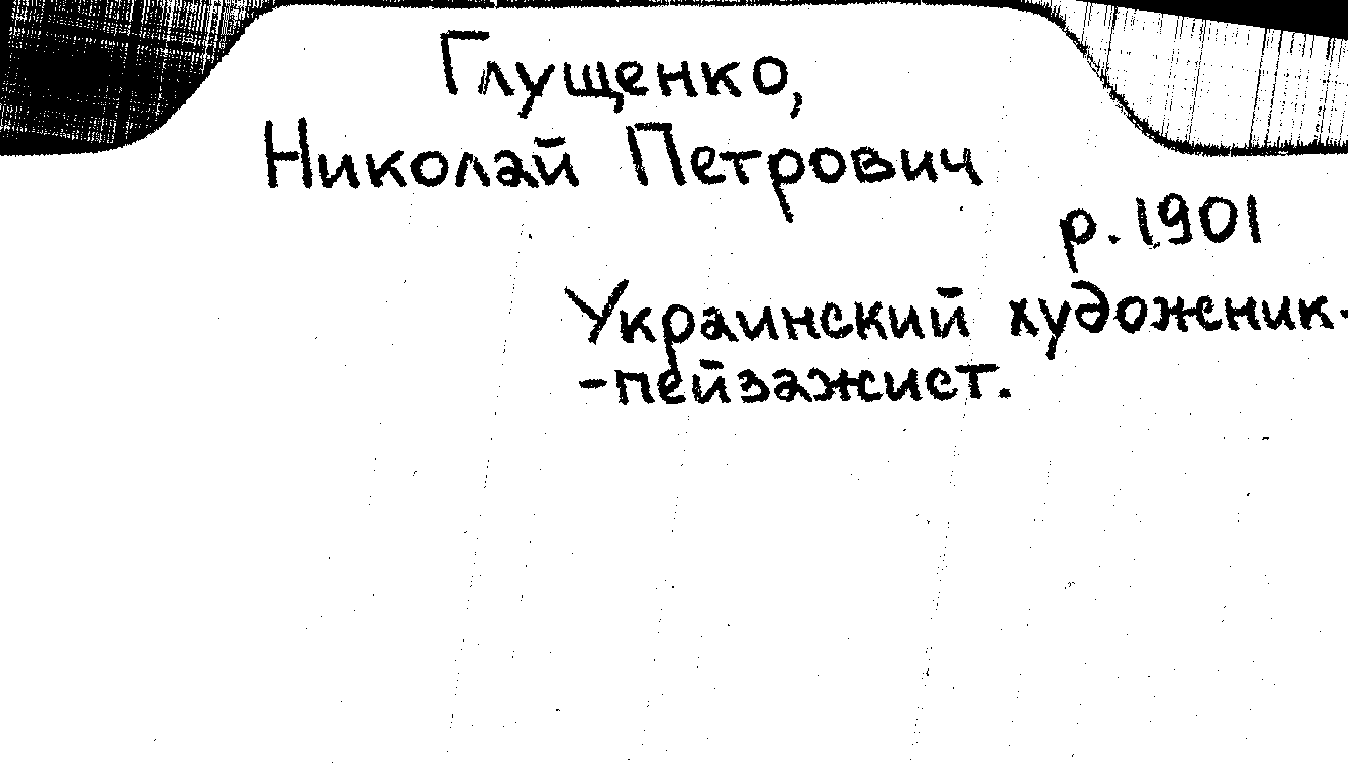 Глущенко,
Николай Петрович
р. 1901
Украинский художник-
-пейзажист.